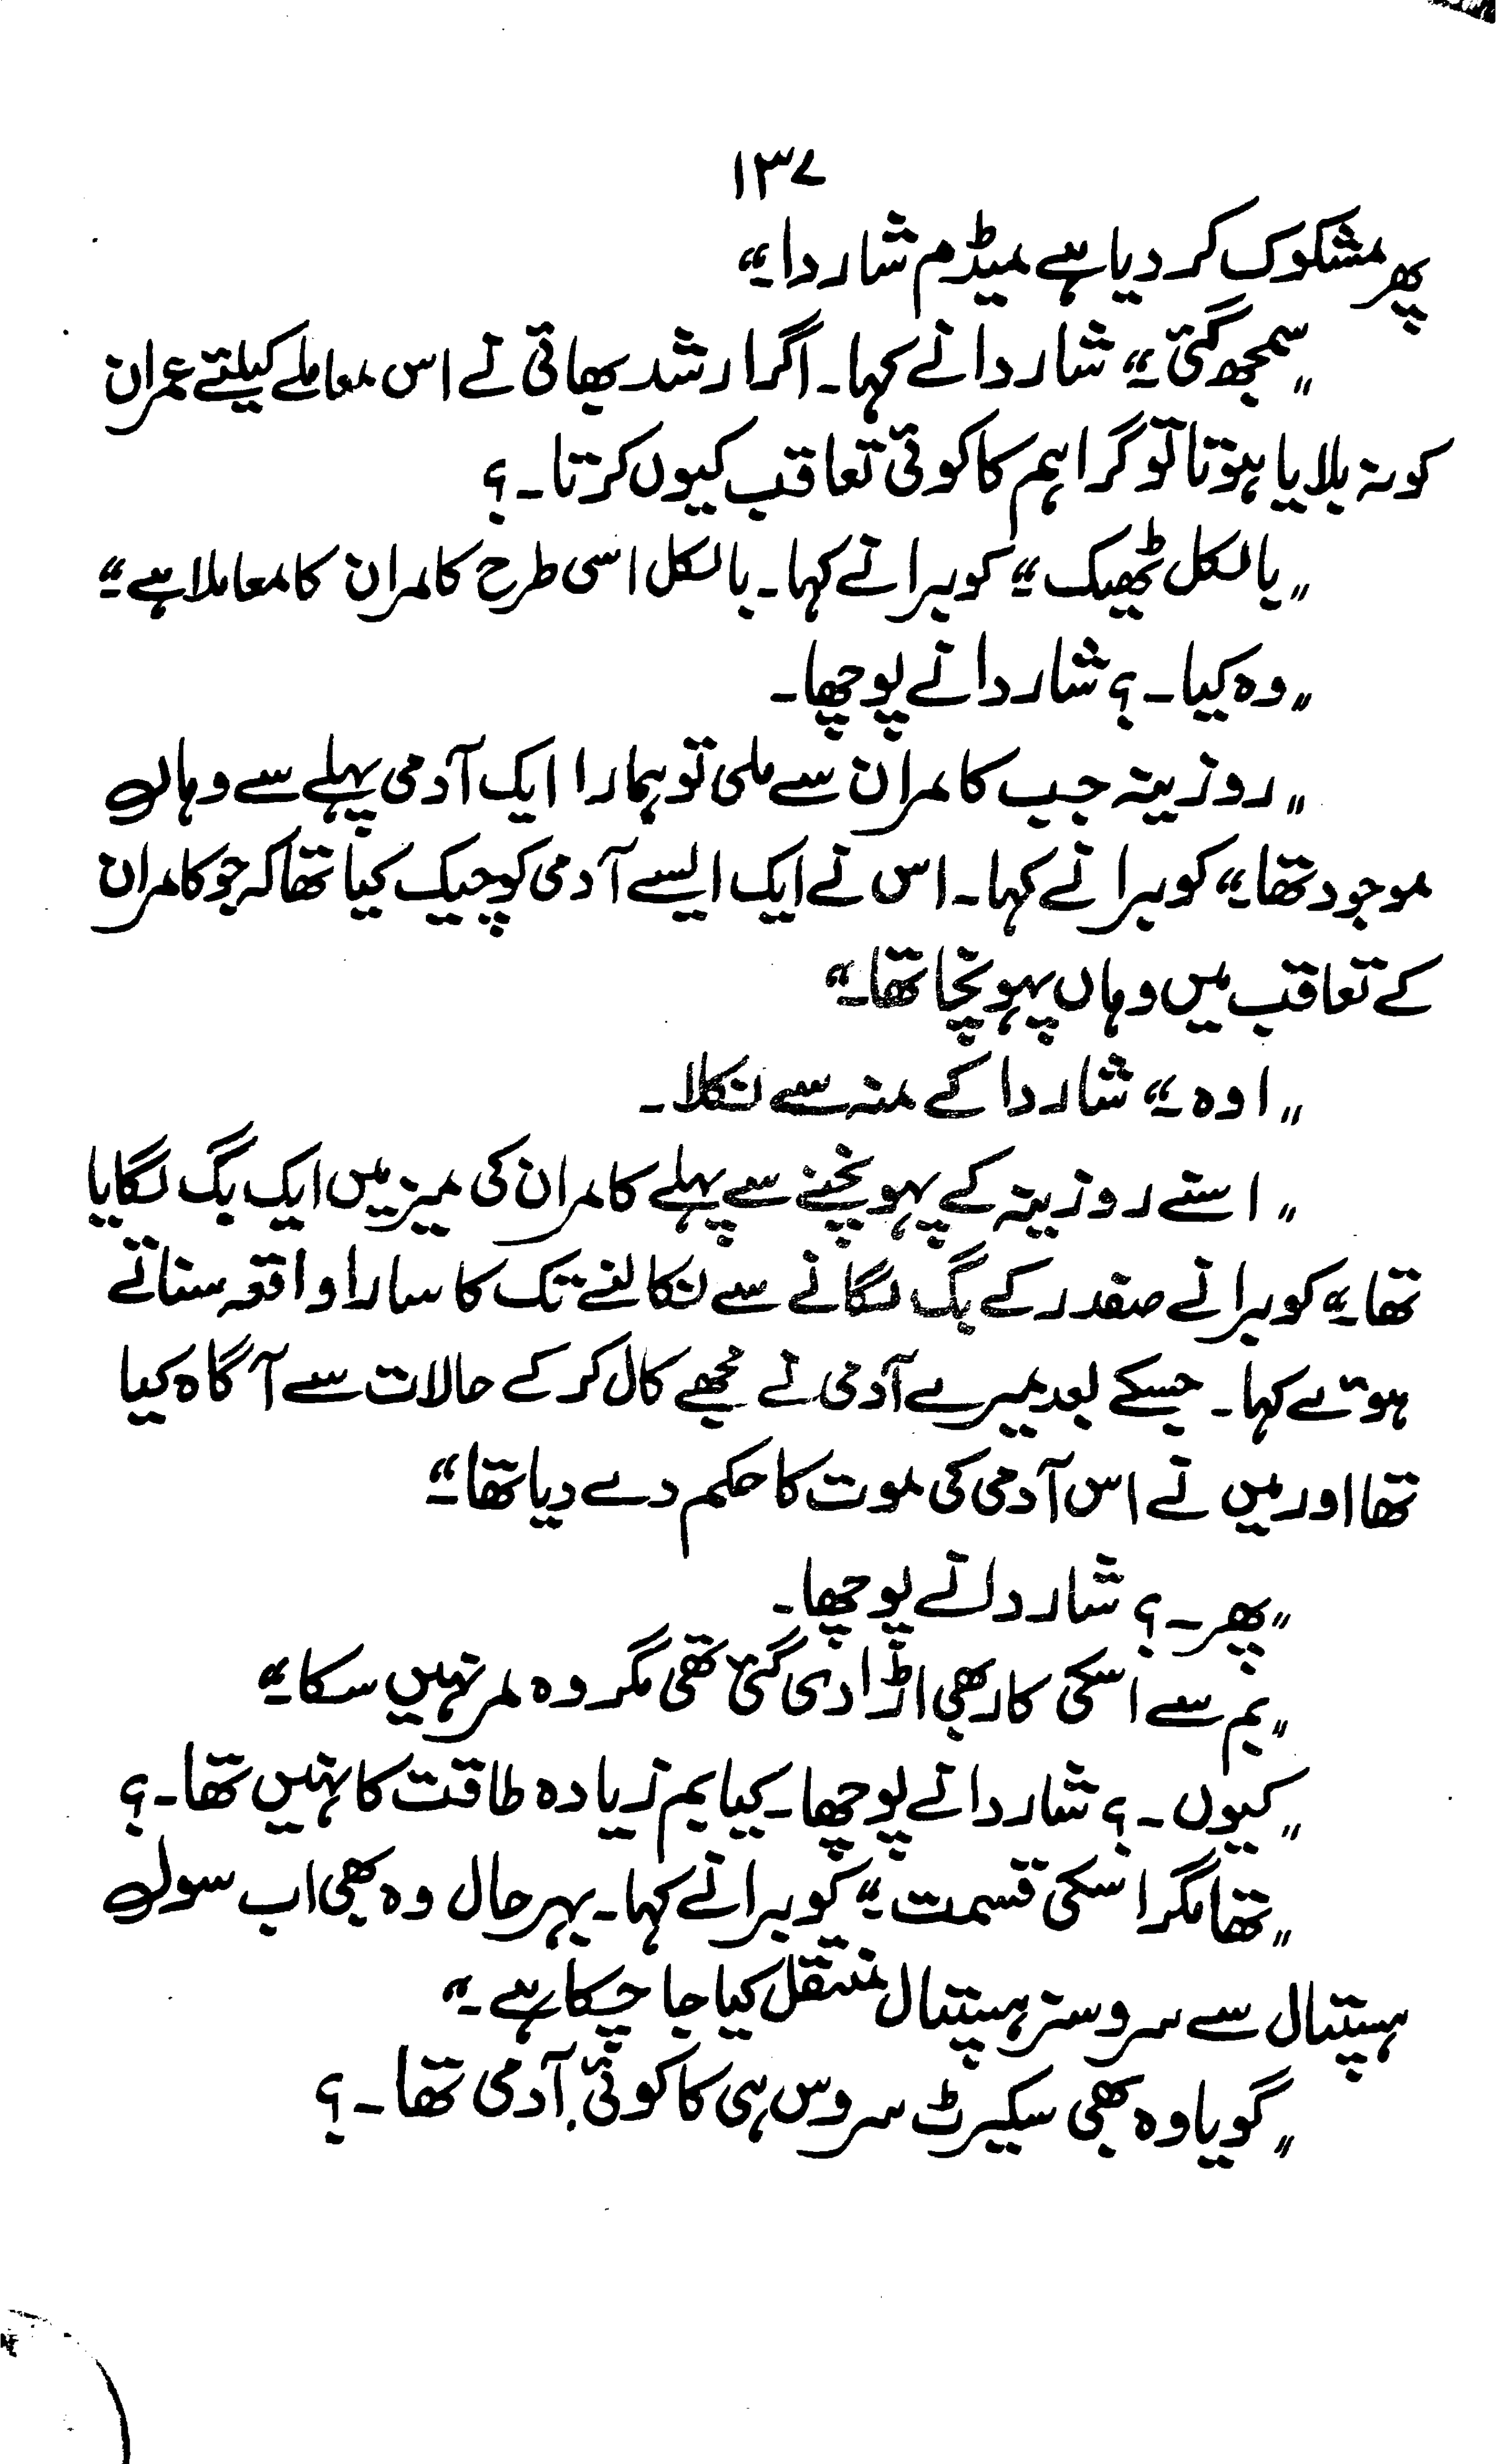 ۱۳۷
پھر مشکوک کر دیا ہے میڈم شاردا۔“
”سمجھ گئی۔“ شاردا نے کہا۔ اگر ارشد بھائی نے اس معاملے کیلئے عمران
کو نہ بلایا ہوتا تو گراہم کا کوئی تعاقب کیوں کرتا۔؟
”بالکل ٹھیک۔“ کوبرا نے کہا۔ بالکل اسی طرح کامران کا معاملا ہے۔“
”وہ کیا۔؟ شاردا نے پوچھا۔
”روزینہ جب کامران سے ملی تو ہمارا ایک آدمی پہلے سے وہاں
موجود تھا۔“ کوبرا نے کہا۔ اس نے ایک ایسے آدمی کو چیک کیا تھا کہ جو کامران
کے تعاقب میں وہاں پہونچا تھا۔“
”اوہ۔“ شاردا کے منہ سے نکلا۔
”اسنے روزینہ کے پہونچنے سے پہلے کامران کی میز میں ایک بگ لگایا
تھا۔“ کوبرا نے صفدر کے بگ لگانے سے نکالنے تک کا سارا واقعہ سناتے
ہوتے کہا۔ جسکے بعد میرے آدمی نے مجھے کال کر کے حالات سے آگاہ کیا
تھا اور میں نے اس آدمی کی موت کا حکم دے دیا تھا۔“
”پھر۔؟ شاردا نے پوچھا۔
”بم سے اسکی کار بھی اڑا دی گئی تھی مگر وہ مر نہیں سکا۔“
”کیوں۔؟ شاردا نے پوچھا۔ کیا بم زیادہ طاقت کا نہیں تھا۔؟
”تھا مگر اسکی قسمت۔“ کوبرا نے کہا۔ بہرحال وہ بھی اب سول
ہسپتال سے سروسز ہسپتال منتقل کیا جا چکا ہے۔“
”گویا وہ بھی سیکرٹ سروس ہی کا کوئی آدمی تھا۔؟